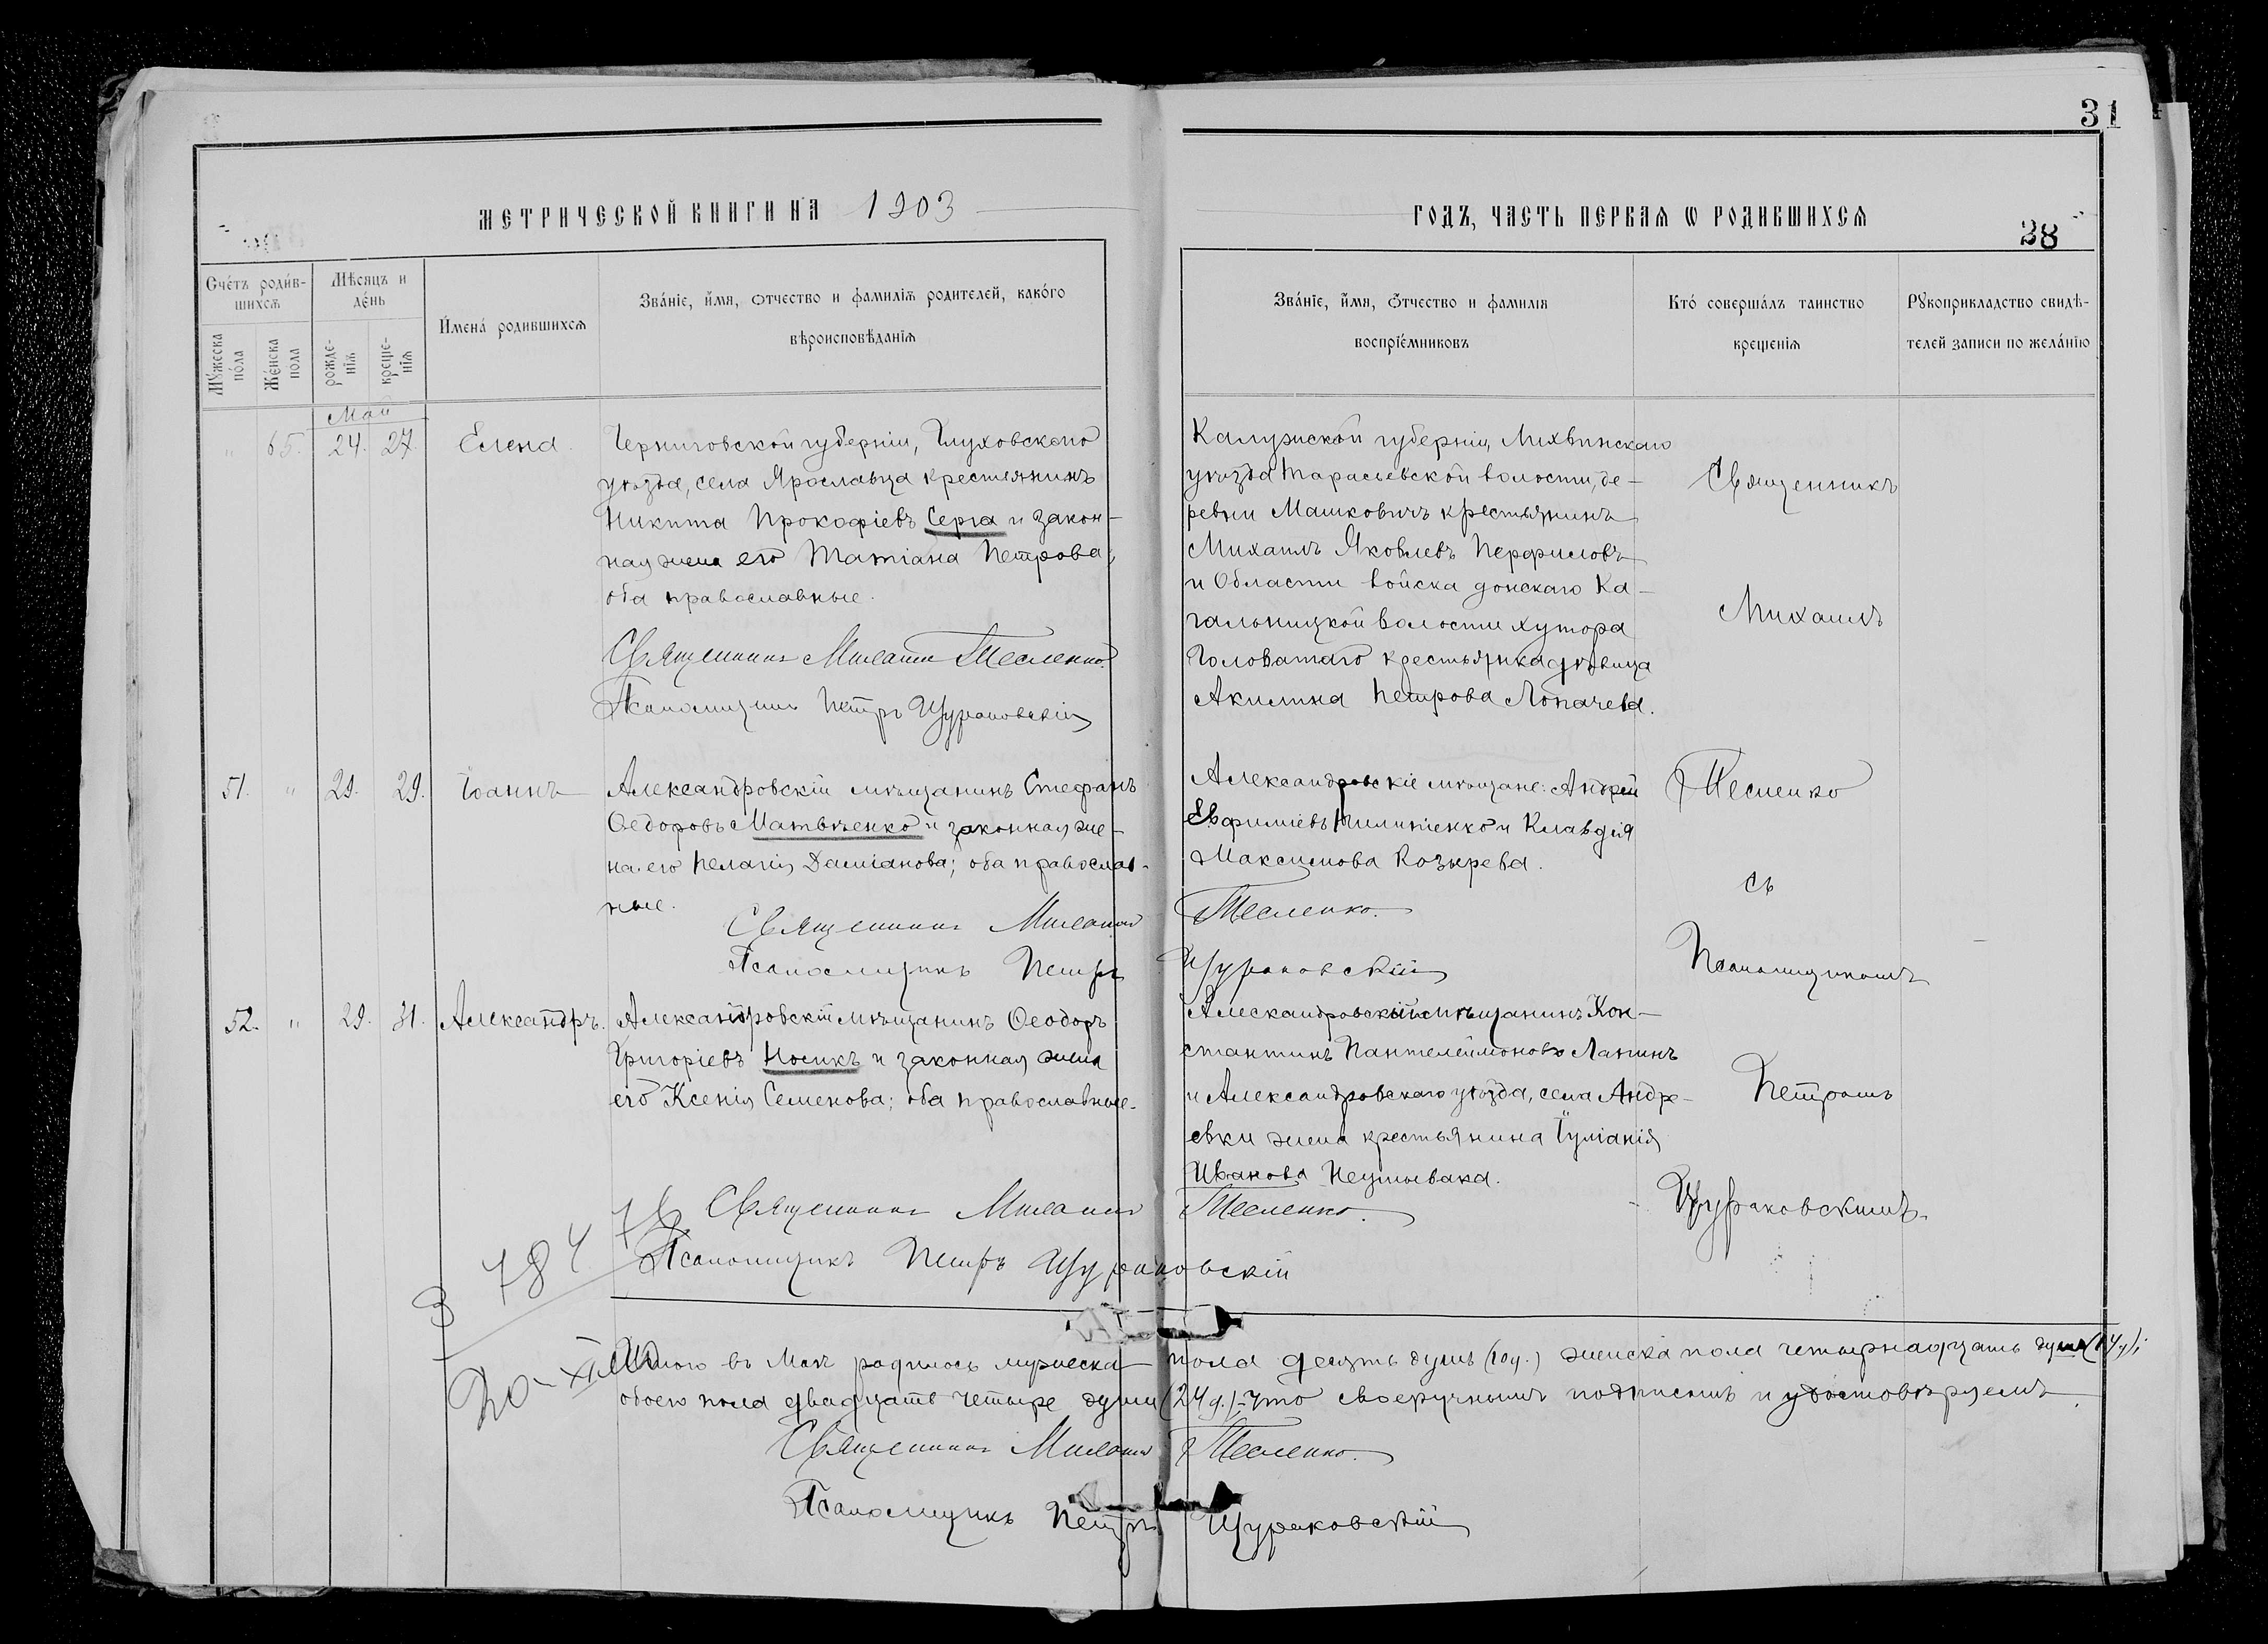 31
МЕТРИЧЕСКОЙ КНИГИ НА 1903
ГОДЪ, ЧАСТЬ ПЕРВАЯ Ѡ РОДИВШИХСЯ
28
Счétъ родúв-
шихсѧ
Мѣсяцъ и
дéнь
Мꙋ́жеска
пóла
Жéнска
пола
рожде-
нїѧ
креще-
нїѧ
И́менá родившихсѧ
Звáнїе, и́мя, ѻтчество и фамилїѧ родителей, какóго
вѣроисповѣданїѧ
Звáнїе, и́мя, ѻтчество и фамилїя
воспрїéмниковъ
Ктó совершáлъ таинство
крещенїя
Рꙋкоприкладство свидѣ-
телей записи по желáнїю
Май
" 65. 24. 27. Елена.
Черниговской губерніи, Глуховскаго
уѣзда, села Ярославца крестьянинъ
Никита Прокофіевъ Серга и закон-
ная жена его Татіана Петрова;
оба православные.
Священникъ Михаилъ Тесленко.
Псаломщикъ Петръ Щураковскій
Калужской губерніи, Лихвинскаго
уѣзда Тарасьевской волости, де-
ревни Машковичъ крестьянинъ
Михаилъ Яковлевъ Перфиловъ
и Области войска донскаго Ка-
гальницкой волости хутора
Головатаго крестьянка дѣвица
Акилина Петрова Лопачева.
Священникъ
Михаилъ
Тесленко
съ
Псаломщикомъ
Петромъ
Щураковскимъ.
51. " 29. 29. Іоаннъ
Александровскій мѣщанинъ Стефанъ
Ѳедоровъ Матвѣенко и законная же-
на его Пелагія Даміанова; оба православ-
ные.
Александровскіе мѣщане: Андрей
Евфиміевъ Пилипенко и Клавдія
Максимова Козырева.
Священникъ Михаилъ Тесленко.
Псаломщикъ Петръ Щураковскій
52. " 29. 31. Александръ.
Александровскій мѣщанинъ Ѳеодоръ
Григоріевъ Носикъ и законная жена
его Ксенія Семенова; оба православные.
Александровскій мѣщанинъ Кон-
стантинъ Пантелеймоновъ Лапинъ
и Александровскаго уѣзда, села Андре-
евки жена крестьянина Іуліанія
Иванова Неумывака.
Священникъ Михаилъ Тесленко.
Псаломщикъ Петръ Щураковскій
784
20-XI
Итого въ Маѣ родилось мужеска пола десять душъ (10 д.) женска пола четырнадцать душъ (14 д);
обоего пола двадцать четыре души (24 д.) - что своеручнымъ подписомъ и удостовѣряемъ.
Священникъ Михаилъ Тесленко.
Псаломщикъ Петръ Щураковскій